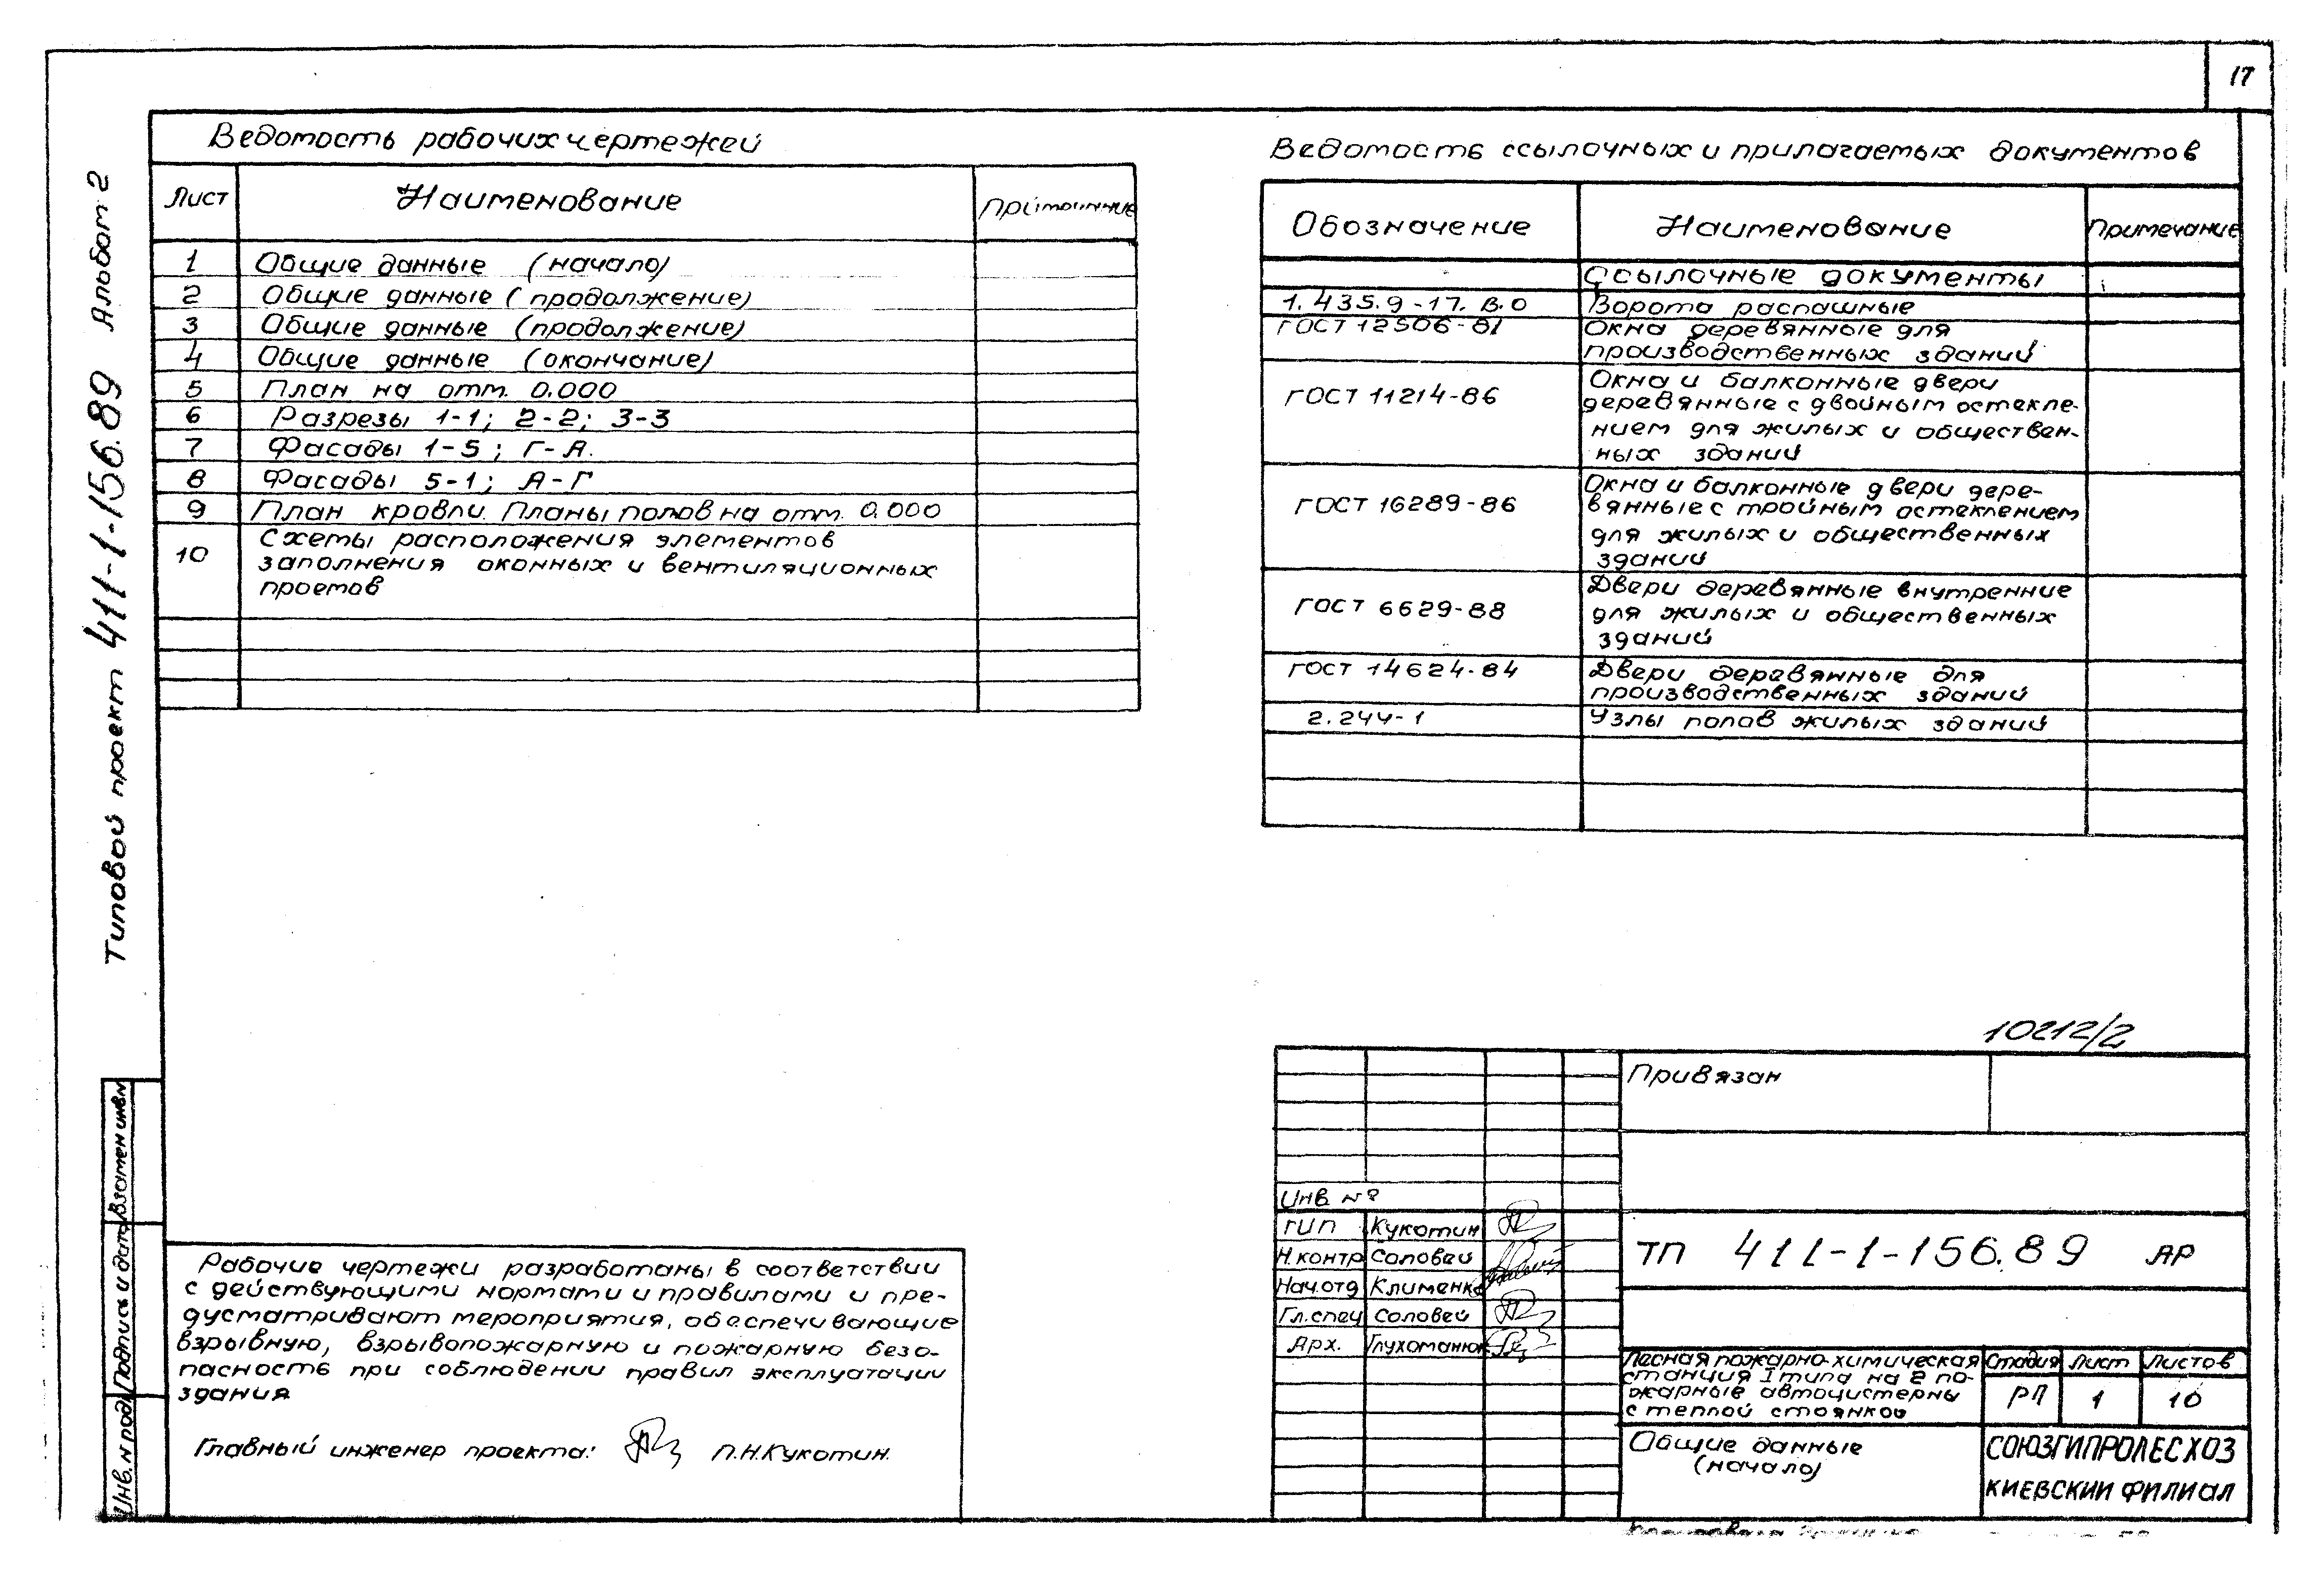 17
Типовой проект 411-1-156.89 Альбом 2
Ведомость рабочих чертежей
Лист Наименование
1 Общие данные (начало)
2 Общие данные (продолжение)
3 Общие данные (продолжение)
4 Общие данные (окончание)
5 План на отм. 0.000
6 Разрезы 1-1; 2-2; 3-3
7 Фасады 1-5; Г-А.
8 Фасады 5-1; А-Г
9 План кровли. Планы полов на отм. 0.000
10 Схемы расположения элементов
заполнения оконных и вентиляционных
проемов
Ведомость ссылочных и прилагаемых документов
Обозначение Наименование Примечание
Ссылочные документы
1.435.9-17. В.0 Ворота распашные
ГОСТ 12506-81 Окна деревянные для
производственных зданий
ГОСТ 11214-86 Окна и балконные двери
деревянные с двойным остекле-
нием для жилых и обществен-
ных зданий
ГОСТ 16289-86 Окна и балконные двери дере-
вянные с тройным остеклением
для жилых и общественных
зданий
ГОСТ 6629-88 Двери деревянные внутренние
для жилых и общественных
зданий
ГОСТ 14624-84 Двери деревянные для
производственных зданий
2.244-1 Узлы полов жилых зданий
10212/2
Привязан
Инв. №
ГИП Кукотин
Н.контр Соловей
Нач.отд Клименко
Гл.спец Соловей
Арх. Глухоманюк
ТП 411-1-156.89 АР
Лесная пожарно-химическая
станция I типа на 2 по-
жарные автоцистерны
с теплой стоянкой
Стадия Лист Листов
РП 1 10
Общие данные
(начало)
СОЮЗГИПРОЛЕСХОЗ
КИЕВСКИЙ ФИЛИАЛ
Рабочие чертежи разработаны в соответствии
с действующими нормами и правилами и пре-
дусматривают мероприятия, обеспечивающие
взрывную, взрывопожарную и пожарную безо-
пасность при соблюдении правил эксплуатации
здания
Главный инженер проекта: П.Н.Кукотин.
Инв. N подл Подпись и дата Взамен инв.N